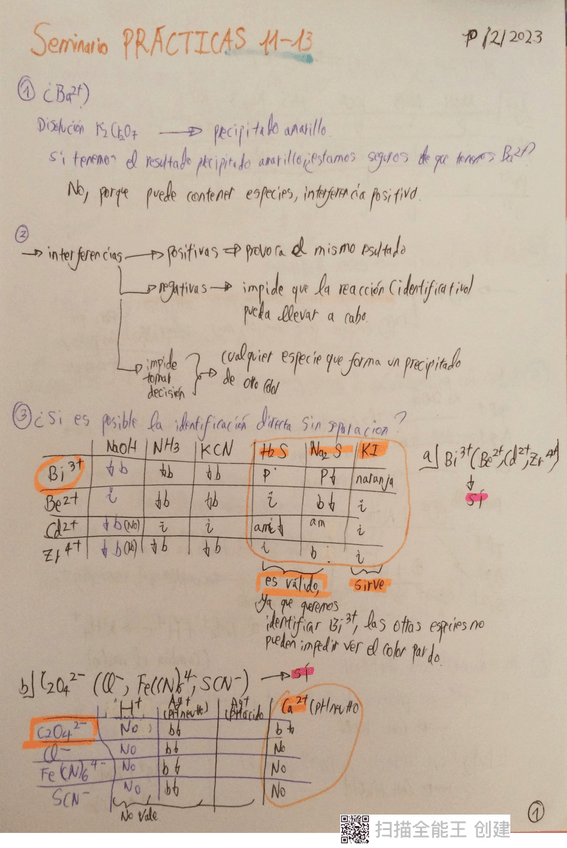 Seminario PRÁCTICAS 11-13
10/2/2023
① ¿Ba²⁺)
Disolución K₂Cr₂O₇ → precipitado amarillo
Si tenemos el resultado precipitado amarillo ¿estamos seguros de que tenemos Ba²⁺?
No, porque puede contener especies, interferencia positiva.
②
→ interferencias → positivas → provoca el mismo resultado
→ negativas → impide que la reacción (identificativa)
pueda llevar a cabo.
→ impide tomar decisión } → cualquier especie que forma un precipitado
de otro color
③ ¿Si es posible la identificación directa sin separación?
NaOH NH3 KCN H₂S Na₂S KI
Bi³⁺ ↓b ↓b ↓b P P↓ naranja
Be²⁺ i ↓b ↓b i b↓ i
Cd²⁺ ↓b (No) i i am↓ am i
Zr⁴⁺ ↓b ↓b ↓b i b i
a) Bi³⁺ (Be²⁺, Cd²⁺, Zr⁴⁺)
↓
sí
es válido, sirve
ya que queremos
identificar Bi³⁺, las otras especies no
pueden impedir ver el color pardo.
b) C₂O₄²⁻ (Cl⁻, Fe(CN)₆⁴⁻, SCN⁻) → sí
H⁺ Ag⁺ (pH neutro) Ag⁺ pH ácido Ca²⁺ (pH neutro
C₂O₄²⁻ No b↓ b↓
Cl⁻ No b↓ No
Fe(CN)₆⁴⁻ No b↓ No
SCN⁻ No b↓ No
No vale
①
扫描全能王 创建